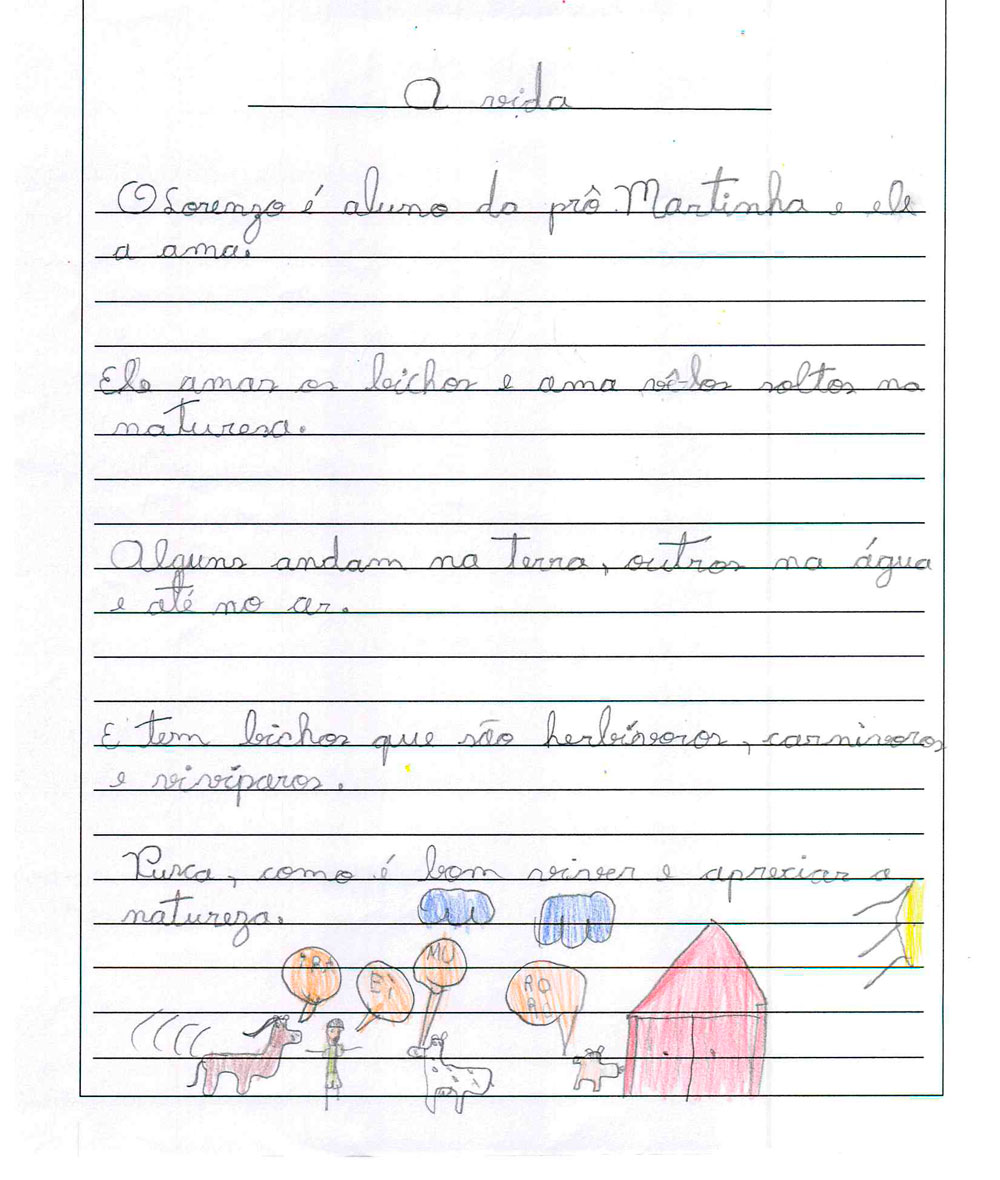 A vida
O Lorenzo é aluno da prô Martinha e ele
a ama.
Ele amas os bichos e ama vê-los soltos na
naturesa.
Alguns andam na terra, outros na água
e até no ar.
E tem bichos que são herbívoros, carnívoros
e vivíparos.
Puxa, como é bom viver e apreciar a
natureza.
MU
EI
RO